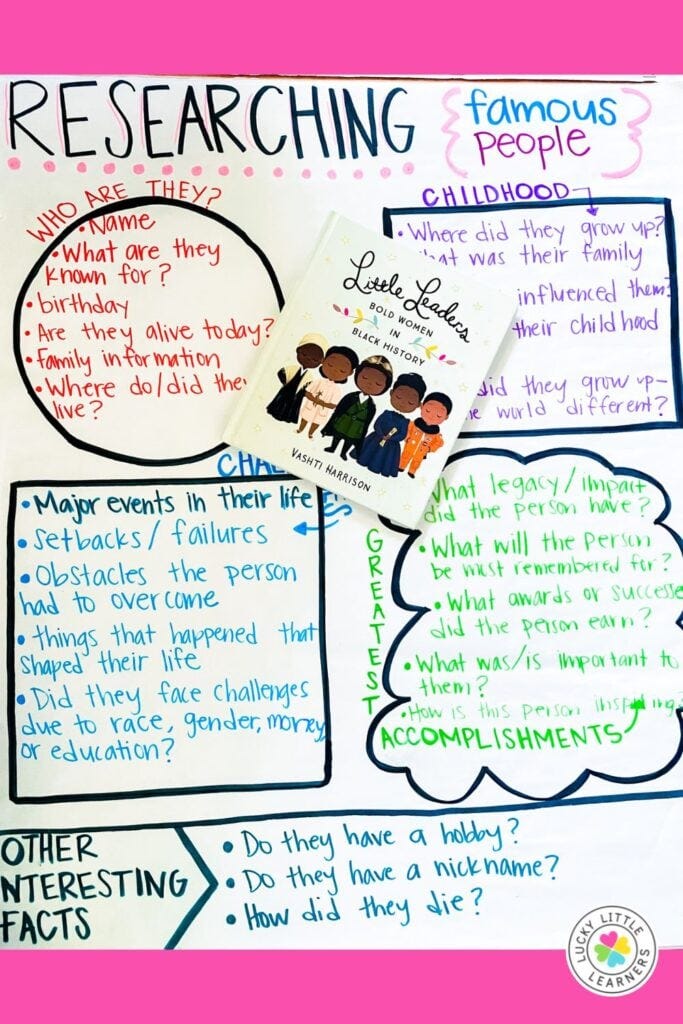 RESEARCHING
famous
people
WHO ARE THEY?
• Name
• What are they
known for?
• birthday
• Are they alive today?
• Family information
• Where do/did they
live?
CHILDHOOD
• Where did they grow up?
what was their family
influenced them?
their childhood
did they grow up-
world different?
Little Leaders
BOLD WOMEN
IN
BLACK HISTORY
VASHTI HARRISON
• Major events in their life
• Setbacks/failures
• Obstacles the person
had to overcome
• things that happened that
shaped their life
• Did they face challenges
due to race, gender, money,
or education?
GREATEST
What legacy/impact
did the person have?
• What will the person
be most remembered for?
• What awards or successe
did the person earn?
• What was/is important to
them?
• How is this person inspiring?
ACCOMPLISHMENTS
OTHER
INTERESTING
FACTS
• Do they have a hobby?
• Do they have a nickname?
• How did they die?
LUCKY LITTLE
LEARNERS